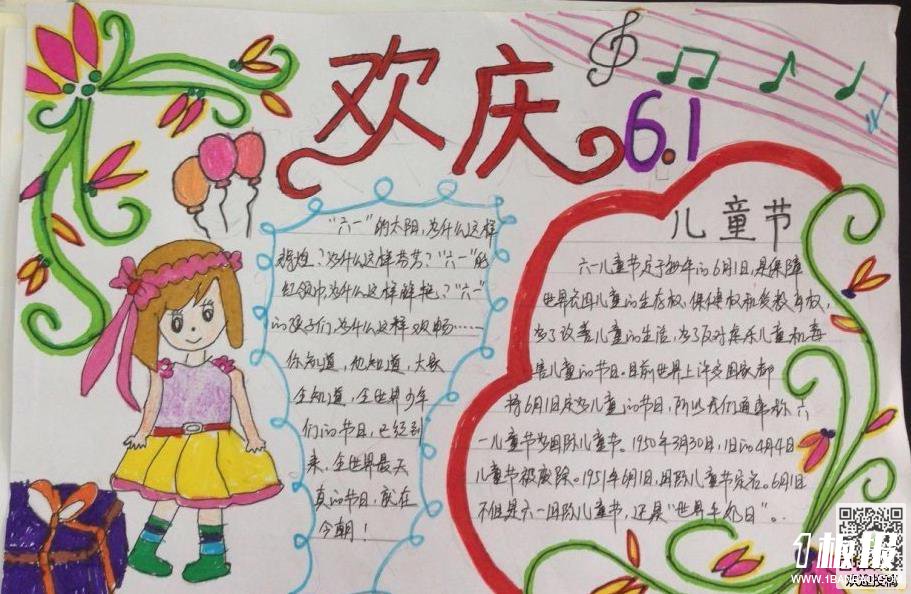 欢庆
6.1
“六一”的太阳，为什么这样
辉煌？为什么这样芬芳？“六一”的
红领巾为什么这样鲜艳？“六一”
的孩子们，为什么这样欢畅……
你知道，他知道，大家
全知道，全世界少年
们的节日，已经到
来，全世界最天
真的节日，就在
今朝！
儿童节
六一儿童节定于每年的6月1日，是保障
世界各国儿童的生存权、保健权和受教育权，
为了改善儿童的生活，为了反对虐杀儿童和毒
害儿童的节日。目前世界上许多国家都
将6月1日定为儿童的节日，所以我们通常称六
一儿童节为国际儿童节。1950年3月30日，旧的4月4日
儿童节被废除。1951年6月1日，国际儿童节定名。6月1日
不但是六一国际儿童节，还是“世界牛奶日”。
1板报
WWW.1BANBAO.COM
欢迎投稿